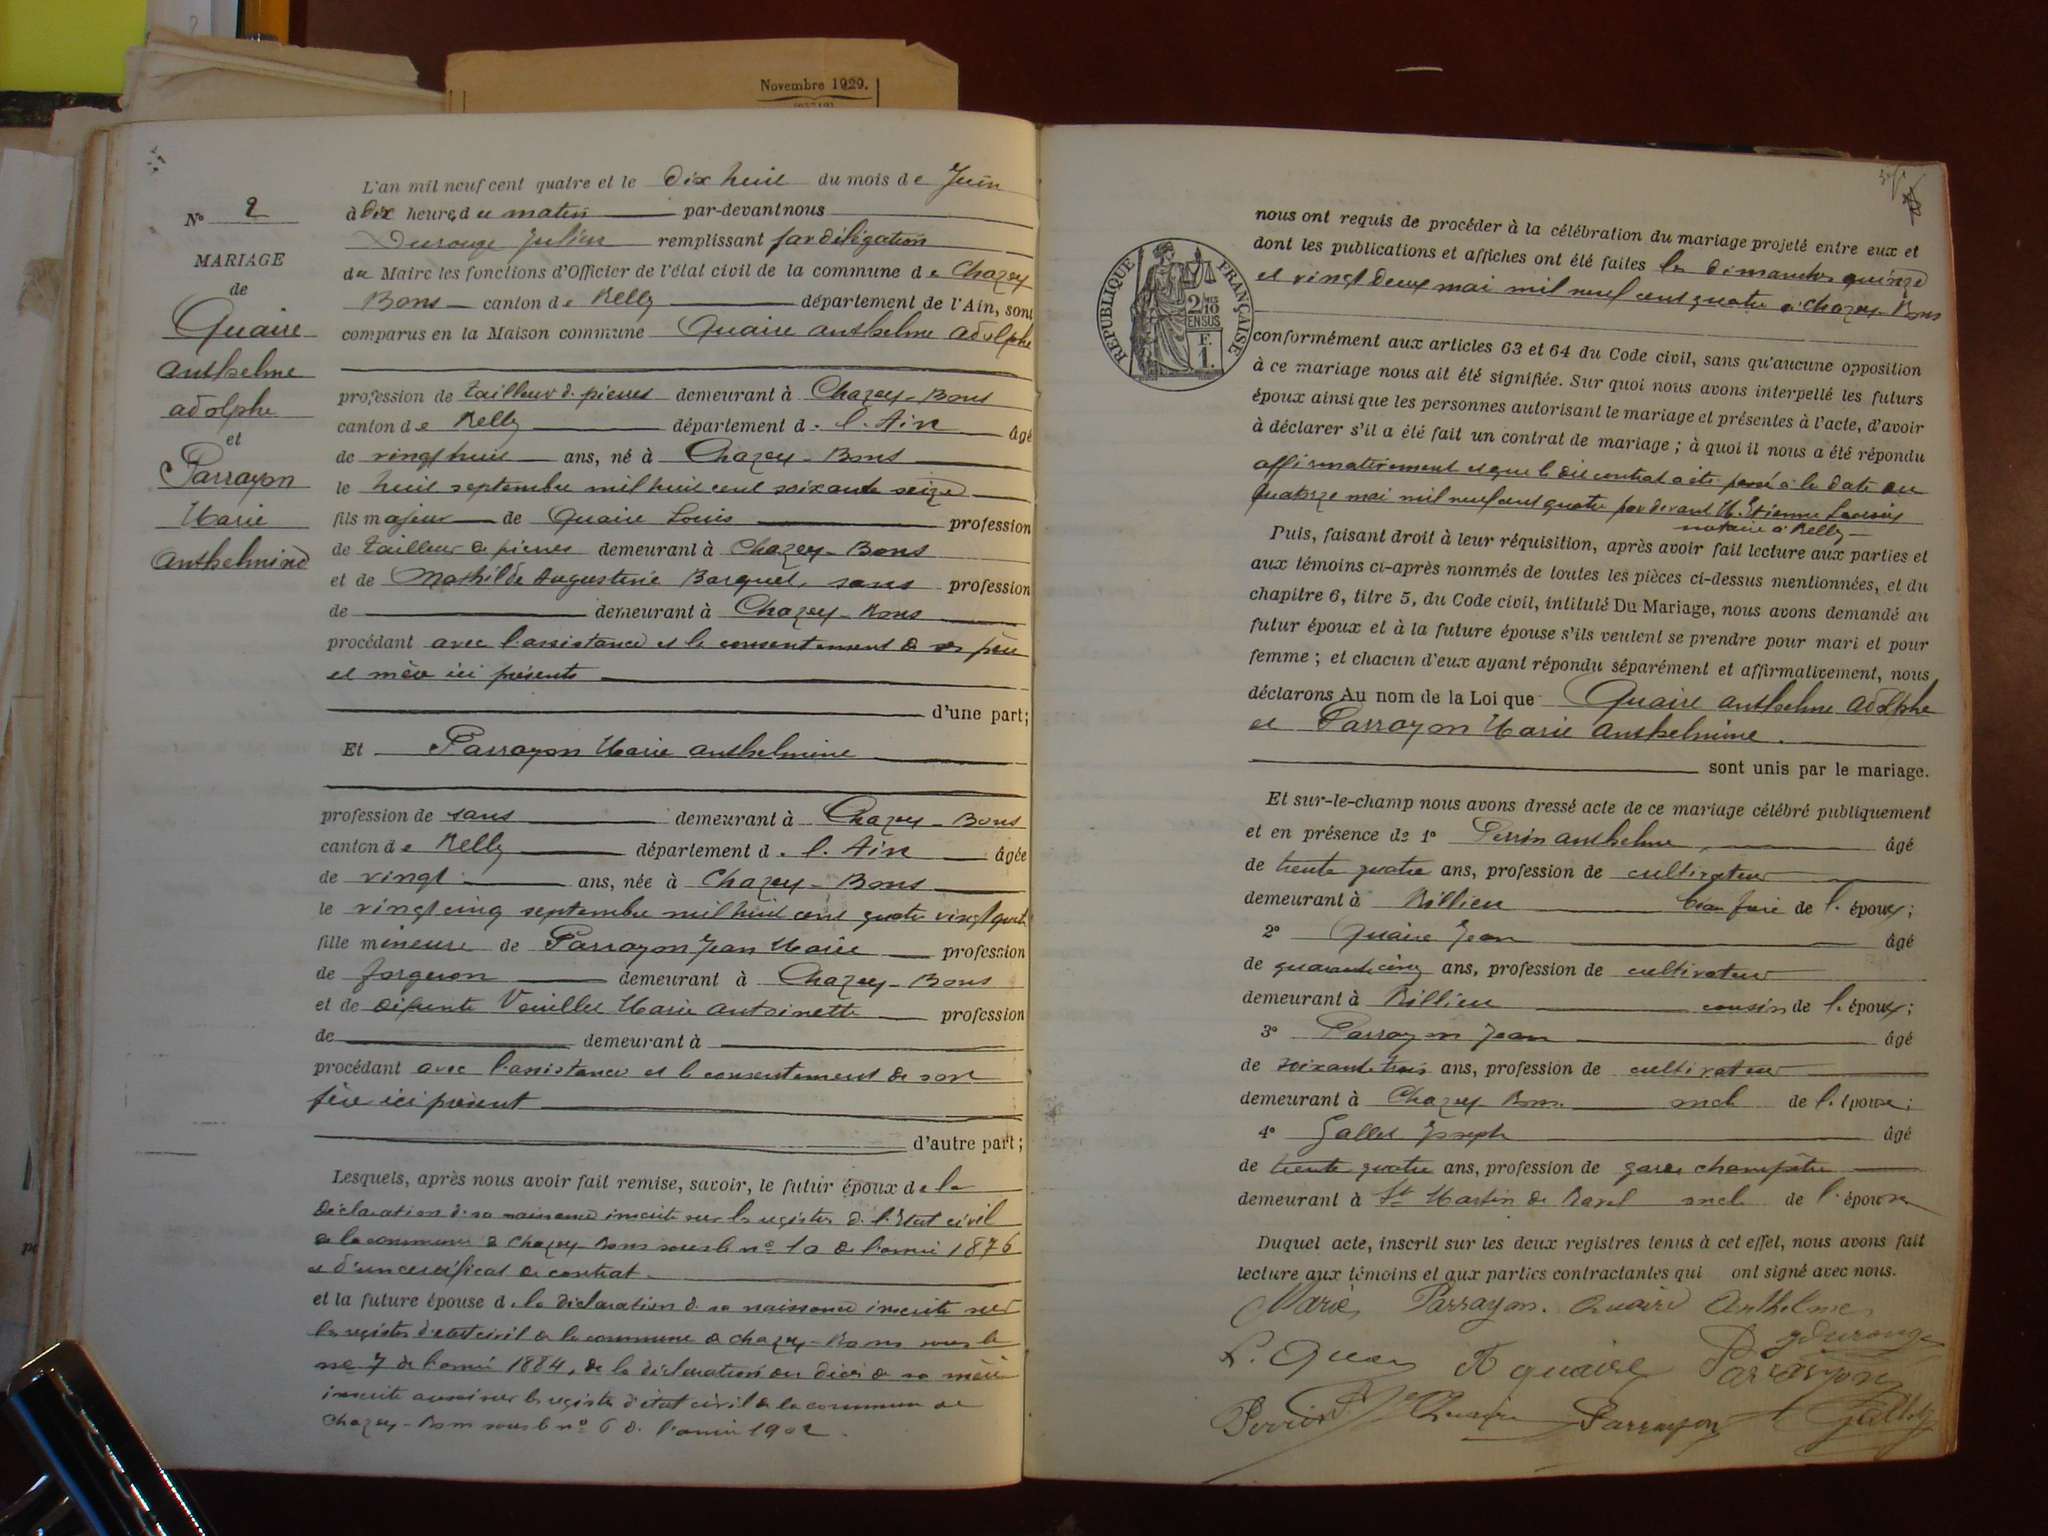 Novembre 1929.
N° 2
MARIAGE
de
Quaire
Anthelme
Adolphe
et
Parrayon
Marie
Anthelmine
L'an mil neuf cent quatre et le dix huit du mois de Juin
à dix heures du matin par-devant nous
Durouge Julien remplissant par délégation
du Maire les fonctions d'Officier de l'état civil de la commune de Chazey
Bons canton de Belley département de l'Ain, sont
comparus en la Maison commune Quaire Anthelme Adolphe
profession de tailleur de pierres demeurant à Chazey-Bons
canton de Belley département de l'Ain âgé
de vingt huit ans, né à Chazey-Bons
le huit septembre mil huit cent soixante seize
fils majeur de Quaire Louis profession
de tailleur de pierres demeurant à Chazey-Bons
et de Mathilde Augustine Barquet, sans profession
de demeurant à Chazey-Bons
procédant avec l'assistance et le consentement de ses père
et mère ici présents
d'une part;
Et Parrayon Marie Anthelmine
profession de sans demeurant à Chazey-Bons
canton de Belley département de l'Ain âgée
de vingt ans, née à Chazey-Bons
le vingt cinq septembre mil huit cent quatre vingt quatre
fille mineure de Parrayon Jean Marie profession
de forgeron demeurant à Chazey-Bons
et de défunte Vuillet Marie Antoinette profession
de demeurant à
procédant avec l'assistance et le consentement de son
père ici présent
d'autre part;
Lesquels, après nous avoir fait remise, savoir, le futur époux de la
déclaration de sa naissance inscrite sur les registres de l'Etat civil
de la commune de Chazey-Bons sous le n° 10 de l'année 1876
et d'un certificat de contrat.
et la future épouse de la déclaration de sa naissance inscrite sur
les registres d'état civil de la commune de Chazey-Bons sous le
n° 7 de l'année 1884, de la déclaration du décès de sa mère
inscrite aussi sur les registres d'état civil de la commune de
Chazey-Bons sous le n° 6 de l'année 1902.
RÉPUBLIQUE FRANÇAISE
2/10
EN SUS
F.
1.
nous ont requis de procéder à la célébration du mariage projeté entre eux et
dont les publications et affiches ont été faites les dimanches quinze
et vingt deux mai mil neuf cent quatre à Chazey-Bons
conformément aux articles 63 et 64 du Code civil, sans qu'aucune opposition
à ce mariage nous ait été signifiée. Sur quoi nous avons interpellé les futurs
époux ainsi que les personnes autorisant le mariage et présentes à l'acte, d'avoir
à déclarer s'il a été fait un contrat de mariage; à quoi il nous a été répondu
affirmativement et que le dit contrat a été passé à la date du
quatorze mai mil neuf cent quatre par devant M. Etienne
notaire à Belley
Puis, faisant droit à leur réquisition, après avoir fait lecture aux parties et
aux témoins ci-après nommés de toutes les pièces ci-dessus mentionnées, et du
chapitre 6, titre 5, du Code civil, intitulé Du Mariage, nous avons demandé au
futur époux et à la future épouse s'ils veulent se prendre pour mari et pour
femme; et chacun d'eux ayant répondu séparément et affirmativement, nous
déclarons Au nom de la Loi que Quaire Anthelme Adolphe
et Parrayon Marie Anthelmine.
sont unis par le mariage.
Et sur-le-champ nous avons dressé acte de ce mariage célébré publiquement
et en présence de 1° Perrin Anthelme, âgé
de trente quatre ans, profession de cultivateur
demeurant à Billieu beau frère de l'époux;
2° Quaire Jean âgé
de quarante cinq ans, profession de cultivateur
demeurant à Billieu cousin de l'époux;
3° Parrayon Jean âgé
de soixante trois ans, profession de cultivateur
demeurant à Chazey-Bons oncle de l'épouse;
4° Gallet Joseph âgé
de trente quatre ans, profession de garde champêtre
demeurant à St Martin de Bavel oncle de l'épouse
Duquel acte, inscrit sur les deux registres tenus à cet effet, nous avons fait
lecture aux témoins et aux parties contractantes qui ont signé avec nous.
Marie Parrayon. Quaire Anthelme
J Durouge
A quaire Parrayon
Parrayon